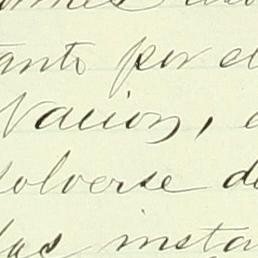 ante por el
Nacion,
solverse de
las insta